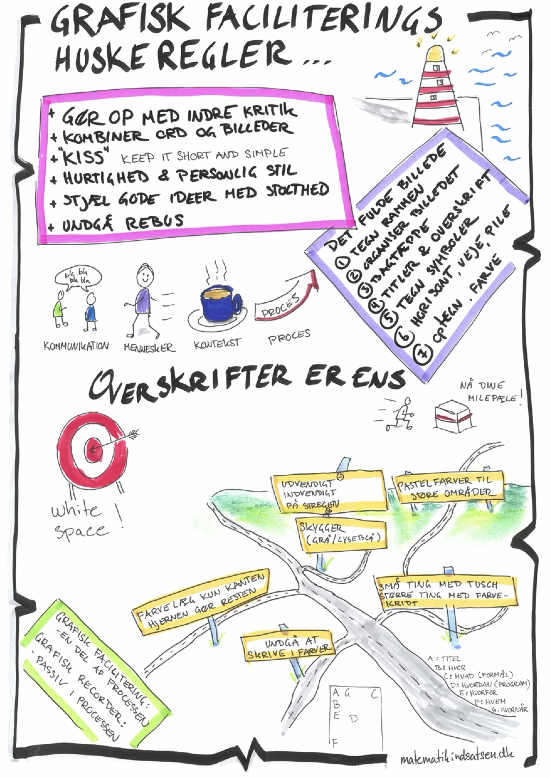 GRAFISK FACILITERINGS
HUSKEREGLER ...
+ GØR OP MED INDRE KRITIK
+ KOMBINER ORD OG BILLEDER
+ "KISS" KEEP IT SHORT AND SIMPLE
+ HURTIGHED & PERSONLIG STIL
+ STJÆL GODE IDEER MED STOLTHED
+ UNDGÅ REBUS
DET FULDE BILLEDE
① TEGN RAMMEN
② ORGANISER BILLEDET
③ BAGTÆPPE
④ TITLER & OVERSKRIFT
⑤ TEGN SYMBOLER
⑥ HORISONT, VEJE, PILE
⑦ OPTEGN, FARVE
bla bla
bla
bla bla
KOMMUNIKATION
MENNESKER
KONTEKST
PROCES
PROCES
OVERSKRIFTER ER ENS
NÅ DINE
MILEPÆLE!
White
space!
UDVENDIGT
INDVENDIGT
PÅ STREGEN
PASTELFARVER TIL
STØRE OMRÅDER
SKYGGER
(GRÅ/LYSEBLÅ)
FARVELÆG KUN KANTEN
HJERNEN GØR RESTEN
SMÅ TING MED TUSCH
STØRRE TING MED FARVE-
KRIDT
UNDGÅ AT
SKRIVE I FARVER
GRAFISK FACILITERING:
- EN DEL AF PROCESSEN
GRAFISK RECORDER:
- PASSIV I PROCESSEN
A: TITEL
B: HVOR
C: HVAD (FORMÅL)
D: HVORDAN (PROGRAM)
E: HVORFOR
F: HVEM
G: HVORNÅR
A G C
B
E D
F
matematikindsatsen.dk